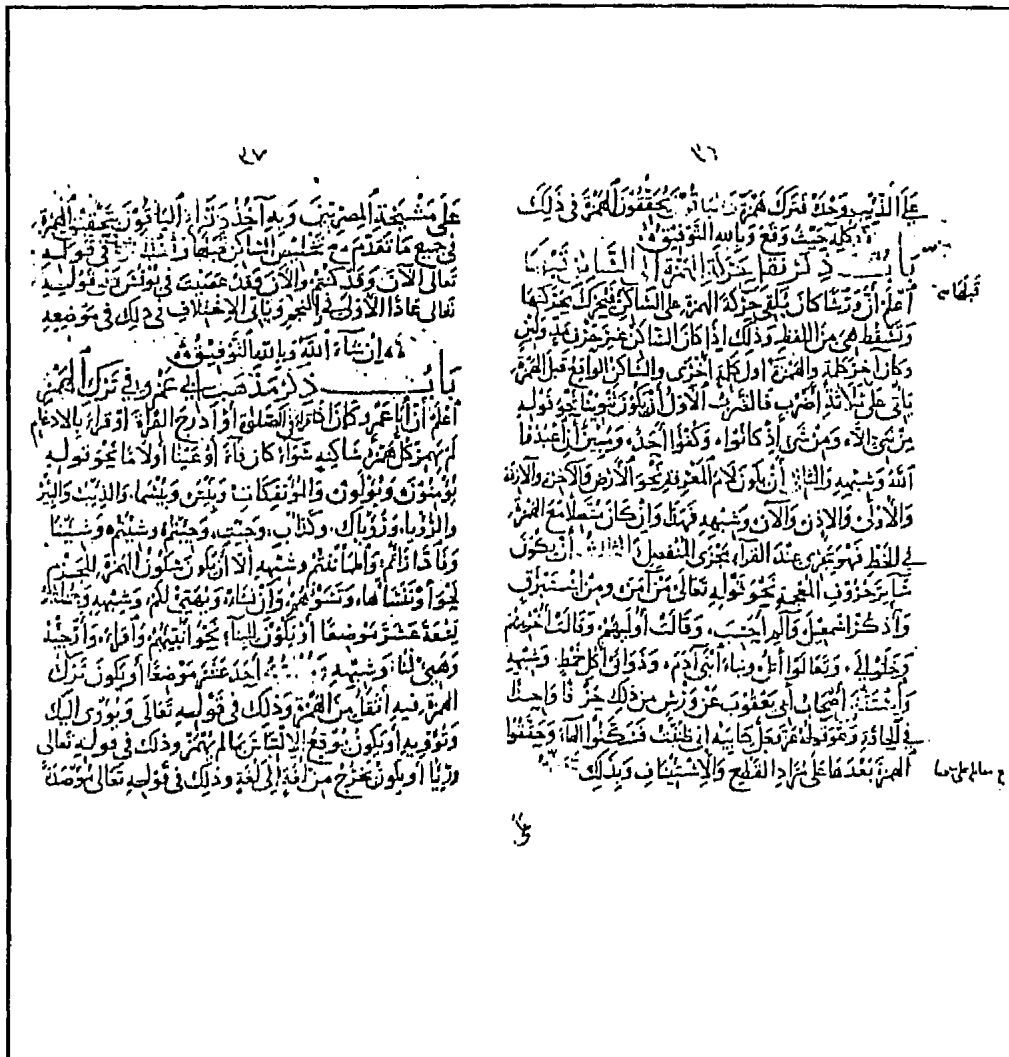 ٣٦
على الذيب وحده فترك همزه والباقون يحققون الهمزة في ذلك
كله حيث وقع وبالله التوفيق
باب ذكر نقل حركة الهمزة الى الساكن قبلها
قبلها
اعلم أن ورشا كان يلقي حركة الهمزة على الساكن فيتحرك بحركتها
وتسقط هي من اللفظ وذلك إذا كان الساكن غير حرف مد ولين
وكان آخر كلمة والهمزة أول كلمة أخرى والساكن الواقع قبل الهمزة
يأتي على ثلاثة أضرب فالضرب الأول أن يكون تنوينا نحو قوله
من شيء الا، ومن شيء إذ كانوا، وكفؤا أحد، ومبين أن اعبدوا
الله وشبهه والثاني أن يكون لام المعرفة نحو الأرض والآخرة والآزفة
والأولى والاذن والآن وشبهه فهذا وإن كان متصلا مع الهمزة
في الخط فهو يجرى عند القراء مجرى المنفصل والثالث أن يكون
سائر حروف المعجم نحو قوله تعالى من آمن ومن استبرق
واذكر اسمعيل والم أحسب، وقالت أوليهم، وقالت أخريهم
وخلوا إلى، وتعالوا أتل، ونبأ ابني آدم، وذواتي أكل خمط وشبهه
واستثنى أصحاب أبي يعقوب عن ورش من ذلك حرفا واحدا
في الحاقة وهو قوله عز وجل كتابيه إني ظننت فسكنوا الهاء وحققوا
الهمزة بعدها على مراد القطع والاستيناف وبذلك
على
٣٧
على مشيخة المصريين وبه آخذ وقرأ الباقون بتحقيق الهمزة
في جميع ما تقدم مع تخليص الساكن قبلها واختلفوا في قوله
تعالى الآن وقد كنتم والآن وقد عصيت في يونس وفي قوله
تعالى عاذا الأولى في النجم ويأتي الاختلاف في ذلك في موضعه
إن شاء الله وبالله التوفيق
باب ذكر مذهب أبي عمرو في ترك الهمز
اعلم أن أبا عمرو كان إذا قرأ في الصلوة أو أدرج القراءة أو قرأ بالادغام
لم يهمز كل همزة ساكنة سواء كان فاء أو عينا أو لاما نحو قوله
يؤمنون ويؤلون والمؤتفكات وبئس وبئسما، والذيب والبئر
والرؤيا، ورؤياك، وكدأب، وجئت، وجئتم وشئتم وشئنا
وفاداراتم واطماننتم وشبهه الا أن يكون سكون الهمزة للجزم
نحو أو ننسأها، وتسؤهم، وإن نشأ، ويهيئ لكم، وشبهه وجملته
تسعة عشر موضعا أو يكون للبناء نحو أنبئهم، واقرأ، وارجئه
وهيئ لنا وشبهه وجملته أحد عشر موضعا أو يكون ترك
الهمزة فيه أثقل من الهمزة وذلك في قوله تعالى وتؤوي اليك
وتؤويه أو يكون يوقع الالتباس بما لم يهمز وذلك في قوله تعالى
ورئيا أو يكون يخرج من لغة إلى لغة وذلك في قوله تعالى مؤصدة